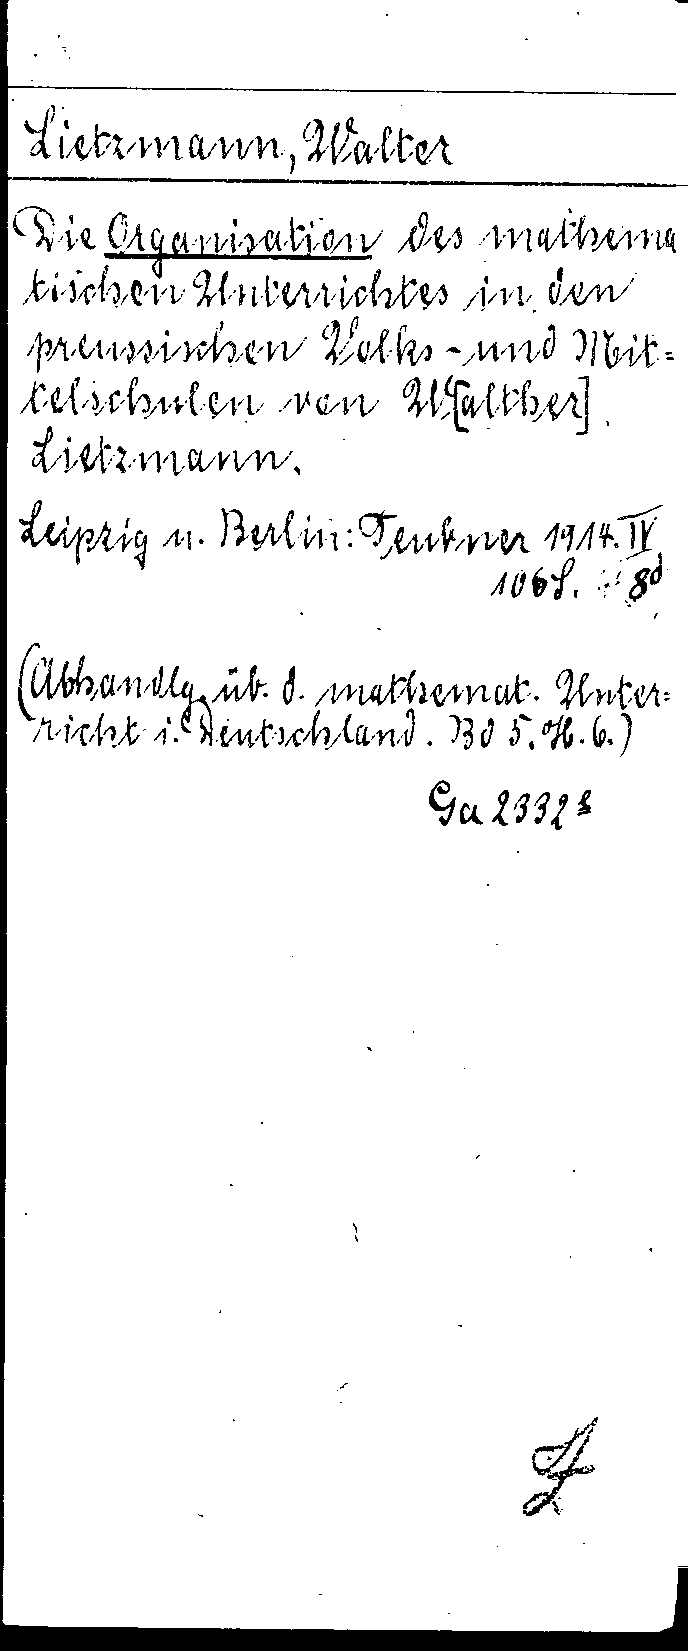 Lietzmann, Walter
Die Organisation des mathema
tischen Unterrichtes in den
preussischen Volks- und Mit=
telschulen von W[alther]
Lietzmann.
Leipzig u. Berlin: Teubner 1914. IV
106 S. 8°
(Abhandlg. üb. d. mathemat. Unter=
richt i. Deutschland. Bd 5. H. 6.)
Ga 2332